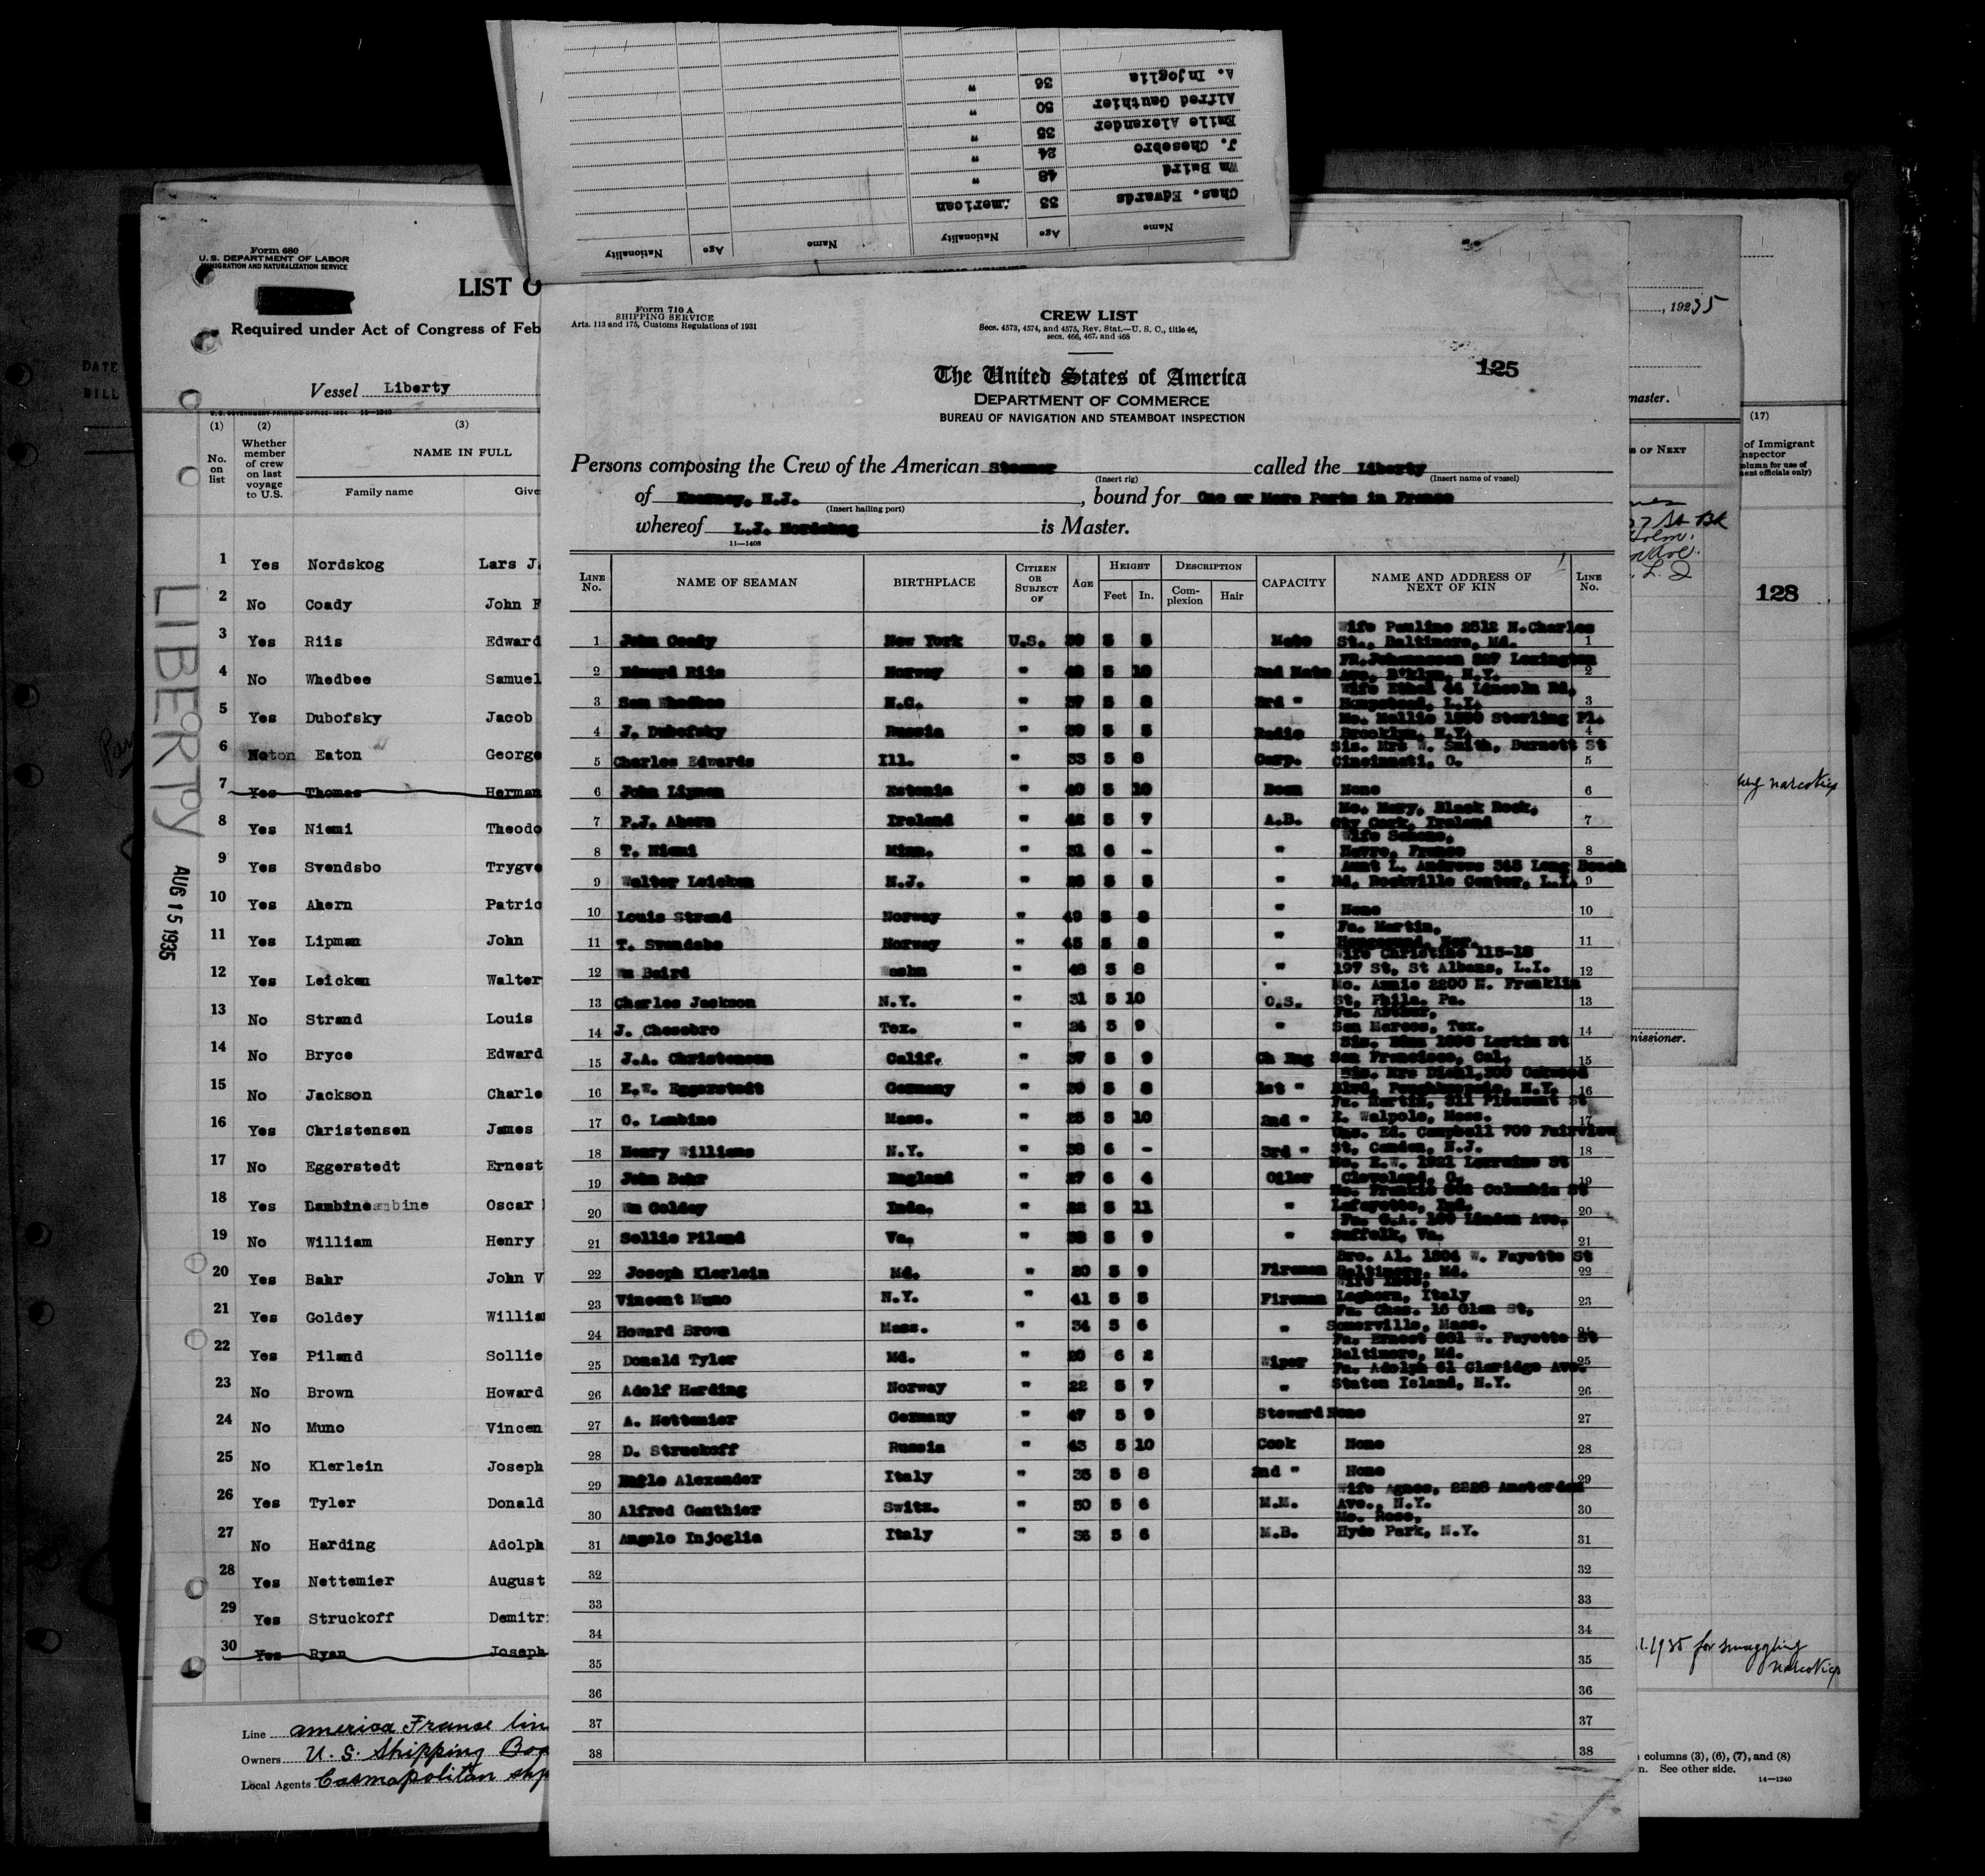 A. Injoglia 36 "
Alfred Gauthier 50 "
Emile Alexander 35 "
J. Chesebro 24 "
Wm Baird 48 "
Chas. Edwards 33 American
Name Age Nationality Name Age Nationality
Form 680
U. S. DEPARTMENT OF LABOR
IMMIGRATION AND NATURALIZATION SERVICE
LIST O
Required under Act of Congress of Feb
Vessel Liberty
(1) (2) (3)
No. on list
Whether member of crew on last voyage to U.S.
NAME IN FULL
Family name Give
1 Yes Nordskog Lars J.
2 No Coady John F
3 Yes Riis Edward
4 No Whedbee Samuel
5 Yes Dubofsky Jacob
6 Eaton George
7 Yes Thomas Herman
8 Yes Niemi Theodo
9 Yes Svendsbo Trygve
10 Yes Ahern Patric
11 Yes Lipman John
12 Yes Leicken Walter
13 No Strand Louis
14 No Bryce Edward
15 No Jackson Charle
16 Yes Christensen James
17 No Eggerstedt Ernest
18 Yes Lambine Oscar
19 No William Henry
20 Yes Bahr John V
21 Yes Goldey Willia
22 Yes Piland Sollie
23 No Brown Howard
24 No Muno Vincen
25 No Klerlein Joseph
26 Yes Tyler Donald
27 No Harding Adolph
28 Yes Nettemier August
29 Yes Struckoff Demitr
30 Yes Ryan Joseph
LIBERTY
AUG 15 1935
Line America France lin
Owners U. S. Shipping Boa
Local Agents Cosmopolitan shp
Form 710 A
SHIPPING SERVICE
Arts. 113 and 175, Customs Regulations of 1931
CREW LIST
Secs. 4573, 4574, and 4575, Rev. Stat.—U. S. C., title 46,
secs. 466, 467, and 468
125
The United States of America
DEPARTMENT OF COMMERCE
BUREAU OF NAVIGATION AND STEAMBOAT INSPECTION
Persons composing the Crew of the American Steamer called the Liberty
(Insert rig) (Insert name of vessel)
of Kearney, N.J., bound for One or More Ports in France
(Insert hailing port)
whereof L.J. Nordskog is Master.
11—1408
LINE No. NAME OF SEAMAN BIRTHPLACE CITIZEN OR SUBJECT OF AGE HEIGHT Feet In. DESCRIPTION Complexion Hair CAPACITY NAME AND ADDRESS OF NEXT OF KIN LINE No.
1 John Coady New York U.S. 39 5 5 Mate Wife Pauline 2512 N.Charles St., Baltimore, Md. 1
2 Edward Riis Norway " 5 10 2nd Mate Lexington Ave, B'klyn, N.Y. 2
3 Sam Whedbee N.C. " 37 5 8 3rd " Wife Ethel 44 Lincoln Rd, Hempstead, L.I. 3
4 J. Dubofsky Russia " 39 5 5 Radio Mo. Mollie Sterling Pl. Brooklyn, N.Y. 4
5 Charles Edwards Ill. " 33 5 8 Carp. Sis. Mrs W. Smith, Burnett St Cincinnati, O. 5
6 John Lipman Estonia " 40 5 10 Bosn None 6
7 P.J. Ahern Ireland " 42 5 7 A.B. Mo. Mary, Black Rock, Cty Cork, Ireland 7
8 T. Niemi Minn. " 31 6 - " Wife Havre, France 8
9 Walter Leicken N.J. " 5 5 " Aunt L. Andrews 345 Long Beach Rd, Rockville Center, L.I. 9
10 Louis Strand Norway " 49 5 8 " None 10
11 T. Svendsbo Norway " 45 5 8 " Fa. Martin, Nor. 11
12 Wm Baird Washn " 48 5 8 " Wife Christine 115-18 197 St, St Albans, L.I. 12
13 Charles Jackson N.Y. " 31 5 10 O.S. Mo. Annie 2200 N. Franklin St, Phila. Pa. 13
14 J. Chesebro Tex. " 24 5 9 " Fa. Arthur, San Marcos, Tex. 14
15 J.A. Christensen Calif. " 37 5 9 Ch Eng Sis. Larkin St San Francisco, Cal. 15
16 E.W. Eggerstedt Germany " 39 5 8 1st " Sis. Mrs Diehl, Oakwood Blvd, Poughkeepsie, N.Y. 16
17 O. Lambine Mass. " 25 5 10 2nd " Fa. Martin, 311 Pleasant St E. Walpole, Mass. 17
18 Henry Williams N.Y. " 38 6 - 3rd " Ed. Campbell 709 Fairview St, Camden, N.J. 18
19 John Bahr England " 27 6 4 Oiler Mo. E.W. 1921 Lorraine St Cleveland, O. 19
20 Wm Goldey Inda. " 22 5 11 " Mo. Frankie Columbia St Lafayette, Ind. 20
21 Sollie Piland Va. " 38 5 9 " Fa. Linden Ave. Suffolk, Va. 21
22 Joseph Klerlein Md. " 20 5 9 Fireman Bro. Al. 1804 W. Fayette St Baltimore, Md. 22
23 Vincent Muno N.Y. " 41 5 5 Fireman Wife Leghorn, Italy 23
24 Howard Brown Mass. " 34 5 6 " Fa. Chas. 16 Glen St, Somerville, Mass. 24
25 Donald Tyler Md. " 20 6 2 Wiper Fa. Ernest W. Fayette St Baltimore, Md. 25
26 Adolf Harding Norway " 22 5 7 " Fa. Adolph 61 Claridge Ave. Staten Island, N.Y. 26
27 A. Nettemier Germany " 47 5 9 Steward None 27
28 D. Struckoff Russia " 43 5 10 Cook None 28
29 Emile Alexander Italy " 35 5 8 2nd " None 29
30 Alfred Gauthier Switz. " 50 5 6 M.M. Wife Agnes, 2226 Amsterdam Ave., N.Y. 30
31 Angelo Injoglia Italy " 36 5 6 M.B. Mo. Rose, Hyde Park, N.Y. 31
32 32
33 33
34 34
35 35
36 36
37 37
38 38
, 19235
master.
(17)
S OF NEXT
of Immigrant
nspector
olumn for use of
ent officials only)
128
narcotics
missioner.
1935 for smuggling
narcotics
columns (3), (6), (7), and (8)
n. See other side.
14—1240